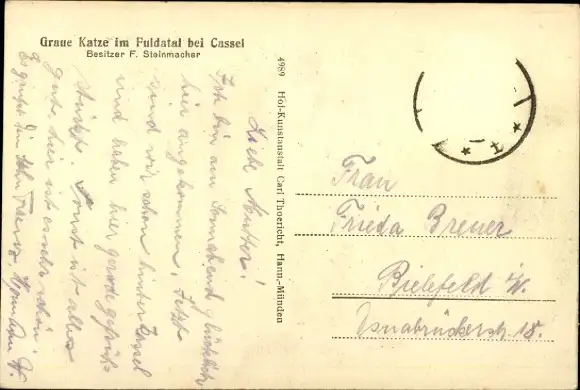 Graue Katze im Fuldatal bei Cassel
Besitzer F. Steinmacher
Liebe Mutter!
Ich bin am Sonnabend glücklich
hier angekommen. Jetzt
sind wir schon hinter Kassel
und haben hier gerade gefrüh-
stückt. Sonst ist alles
gut, hier ist es sehr schön.
Es grüßt Dein Sohn
4989 Hof-Kunstanstalt Carl Thoericht, Hann.-Münden
Frau
Frieda Breuer
Bielefeld i/W.
Osnabrückerstr. 18.